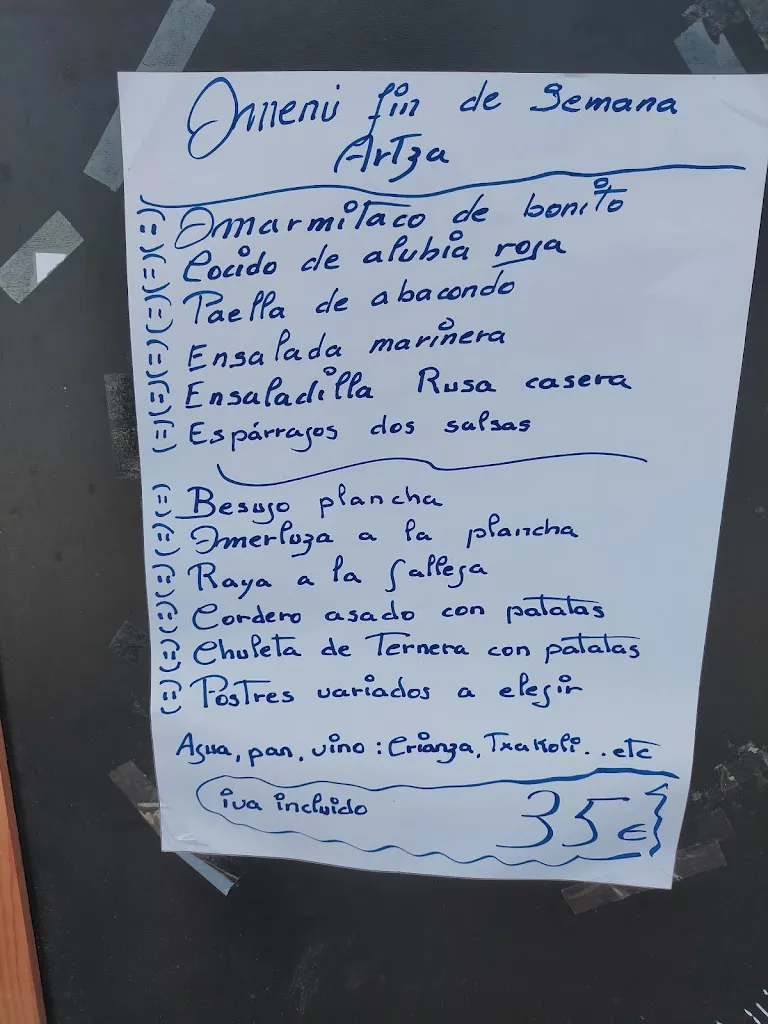 Menú fin de Semana
Artza
(=) Marmitaco de bonito
(=) Cocido de alubia roja
(=) Paella de abacondo
(=) Ensalada marinera
(=) Ensaladilla Rusa casera
(=) Espárragos dos salsas
(=) Besugo plancha
(=) Merluza a la plancha
(=) Raya a la Gallega
(=) Cordero asado con patatas
(=) Chuleta de Ternera con patatas
(=) Postres variados a elegir
Agua, pan, vino: Crianza, Txakoli...etc
iva incluido 35€